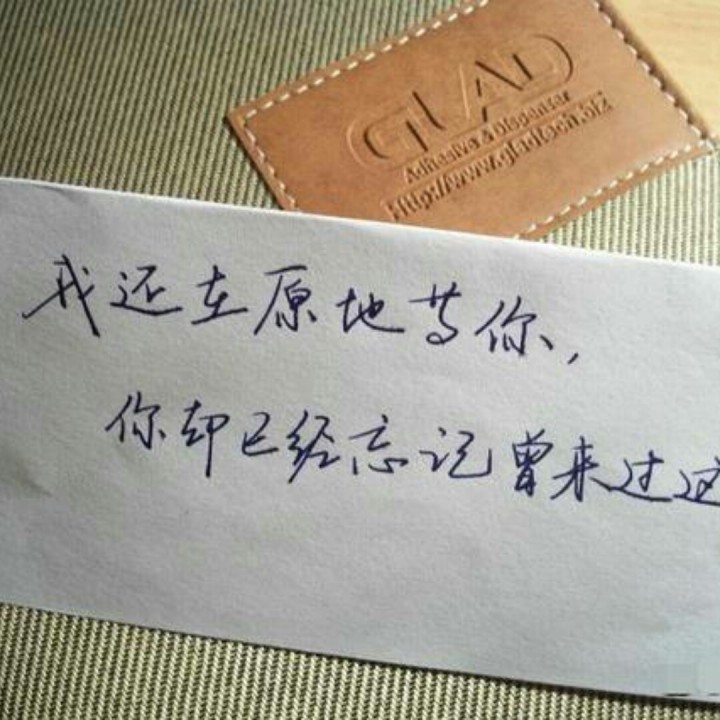 GLAD
Adhesive & Dispenser
Http://www.gladtech.biz
我还在原地等你,
你却已经忘记曾来过这